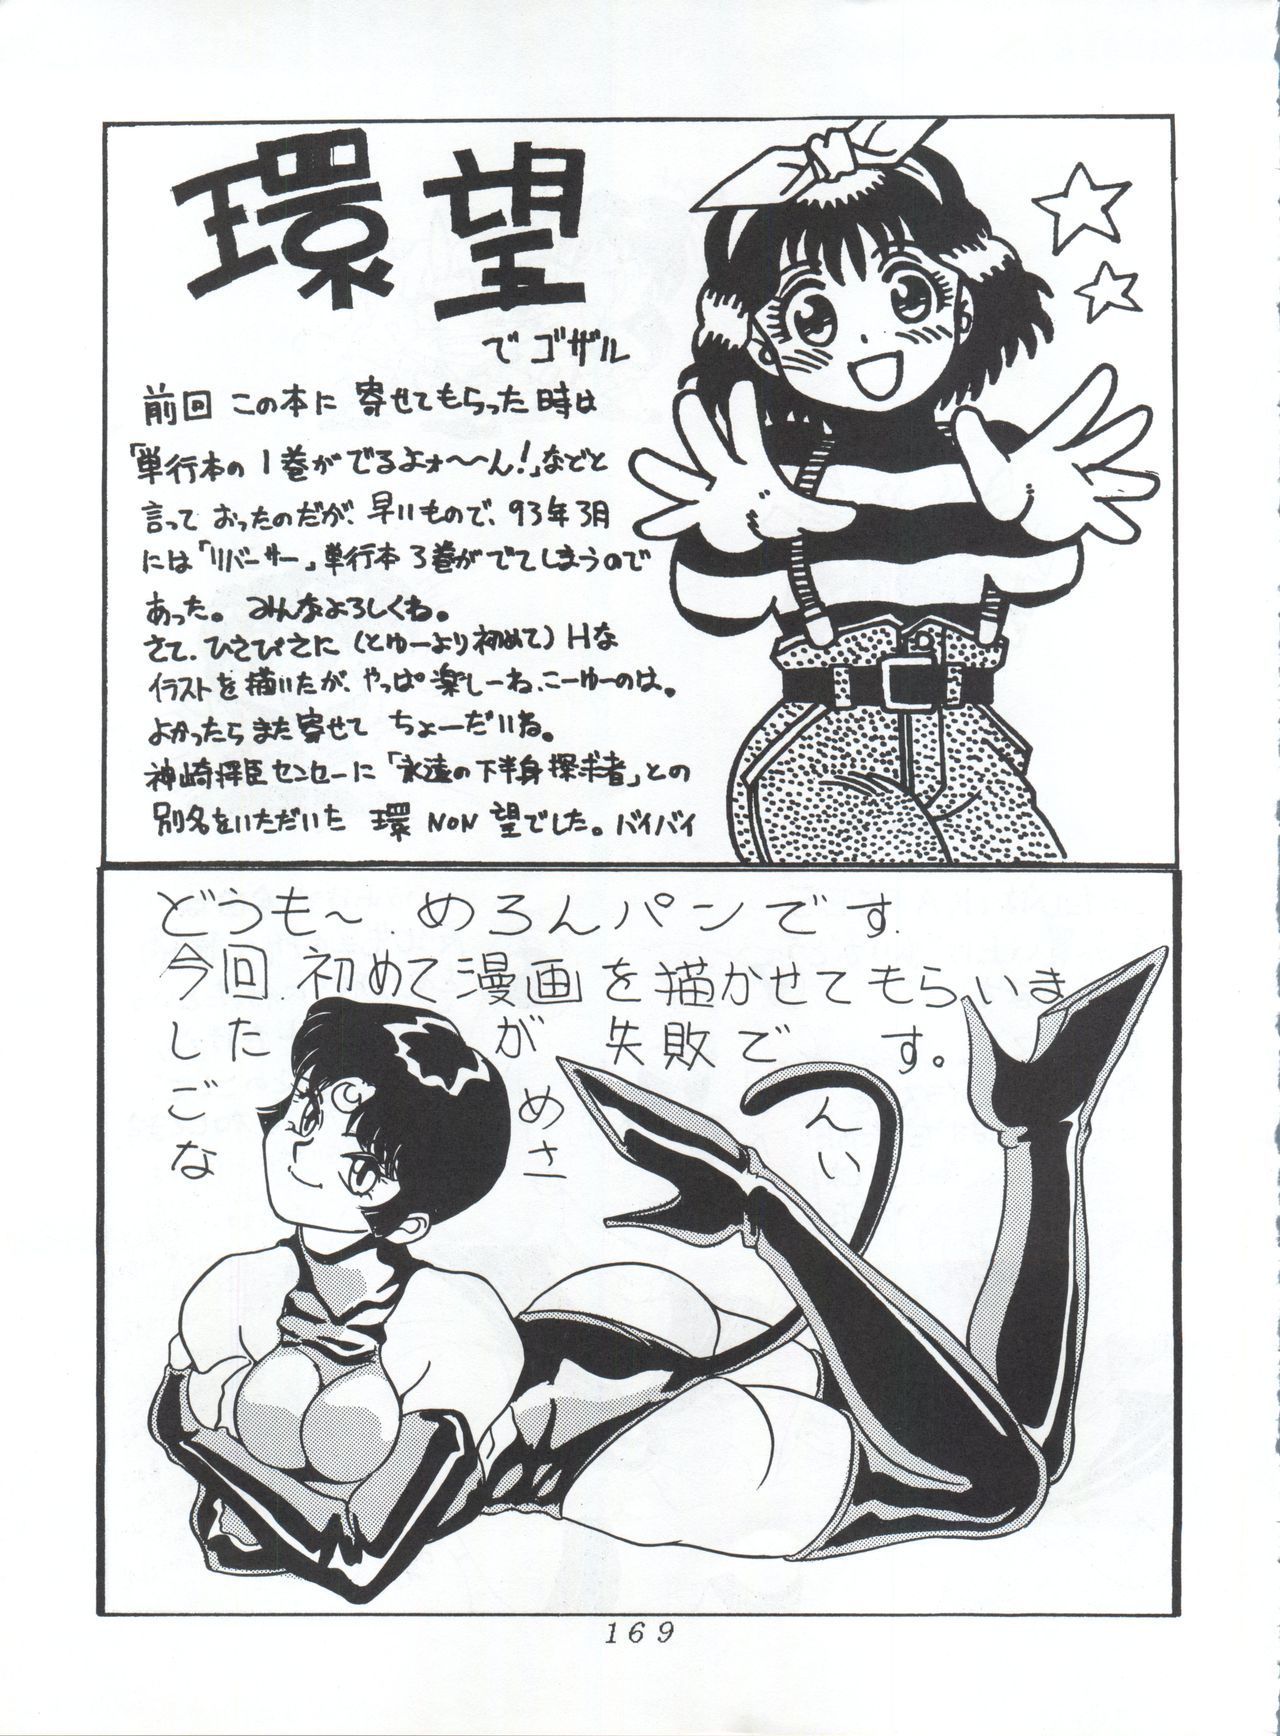 環望
でゴザル
前回この本に寄せてもらった時は
「単行本の1巻がでるよォ〜〜ん!」などと
言っておったのだが、早いもので、93年3月
には「リバーサー」単行本3巻がでてしまうので
あった。みんなよろしくね。
さて、ひさびさに(とゆーより初めて)Hな
イラストを描いたが、やっぱ楽しーね、こーゆーのは。
よかったらまた寄せてちょーだいね。
神崎将臣センセーに「永遠の下半身探求者」との
別名をいただいた 環NON望でした。バイバイ
どうも〜.めろんパンです.
今回.初めて漫画を描かせてもらいま
したが失敗です。
ごめん
なさい
169